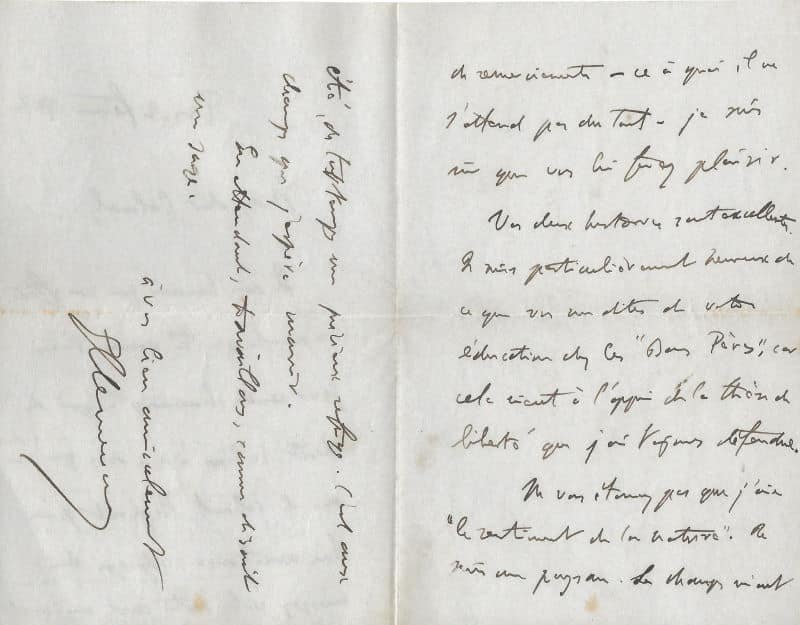 de remerciements – ce à quoi il ne
s'attend pas du tout – je suis
sûr que vous lui ferez plaisir.
Vos deux histoires sont excellentes.
Je suis particulièrement heureux de
ce que vous me dites de votre
éducation chez les "Bons Pères", car
cela vient à l'appui de la thèse de
liberté que j'ai toujours défendue.
Ne vous étonnez pas que j'aie
"le sentiment de la nature". Je
suis un paysan. Les champs m'ont
été, de tout temps un précieux refuge. C'est aux
champs que j'espère mourir.
En attendant, travaillons, comme disait
un sage.
à vous bien amicalement
GClemenceau